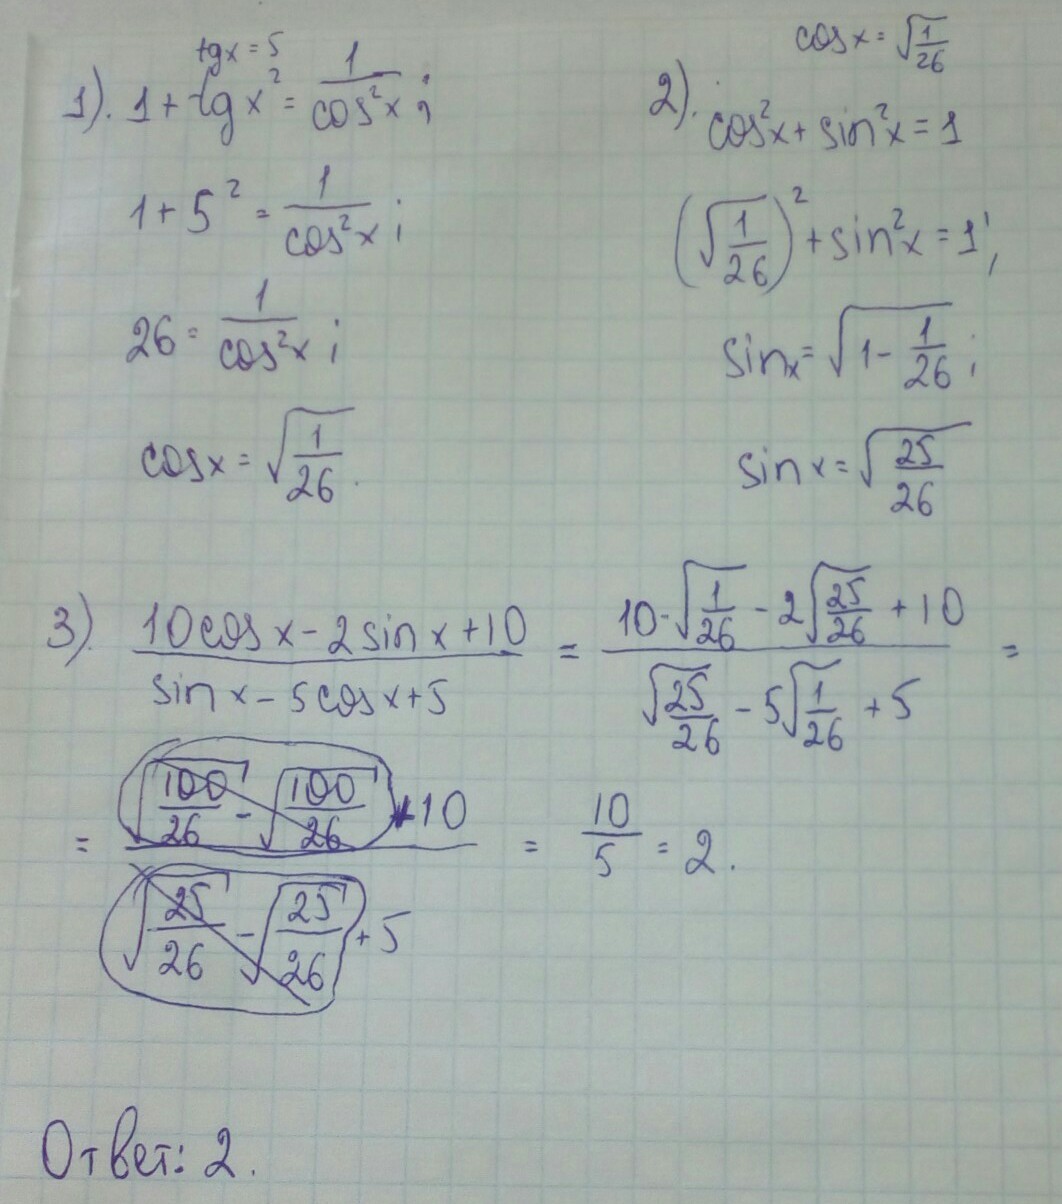 tgx = 5
1). 1 + tgx² = 1/cos²x ;
1 + 5² = 1/cos²x ;
26 = 1/cos²x ;
cosx = √(1/26).
cosx = √(1/26)
2). cos²x + sin²x = 1
(√(1/26))² + sin²x = 1;
sinx = √(1 - 1/26) ;
sinx = √(25/26)
3). (10cosx - 2sinx + 10)/(sinx - 5cosx + 5) = (10·√(1/26) - 2√(25/26) + 10)/(√(25/26) - 5√(1/26) + 5) =
= (√(100/26) - √(100/26) + 10)/(√(25/26) - √(25/26) + 5) = 10/5 = 2.
Ответ: 2.